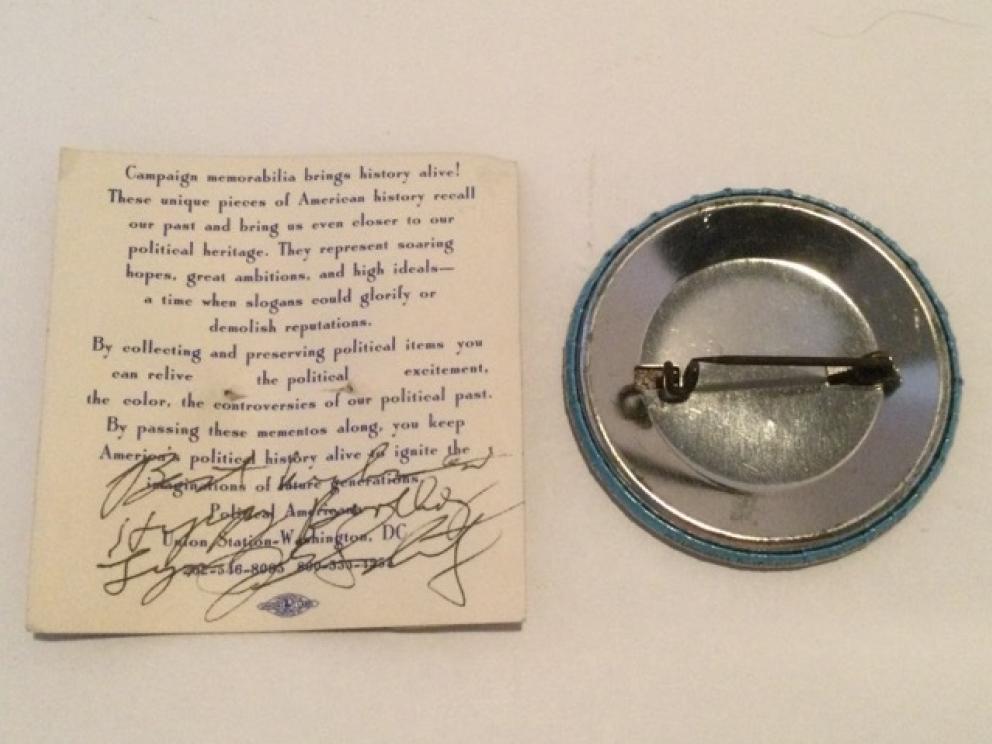 Campaign memorabilia brings history alive!
These unique pieces of American history recall
our past and bring us even closer to our
political heritage. They represent soaring
hopes, great ambitions, and high ideals—
a time when slogans could glorify or
demolish reputations.
By collecting and preserving political items you
can relive the political excitement,
the color, the controversies of our political past.
By passing these mementos along, you keep
America's political history alive to ignite the
imaginations of future generations.
Best wishes
Political Americana
Happy Birthday
Union Station-Washington, DC